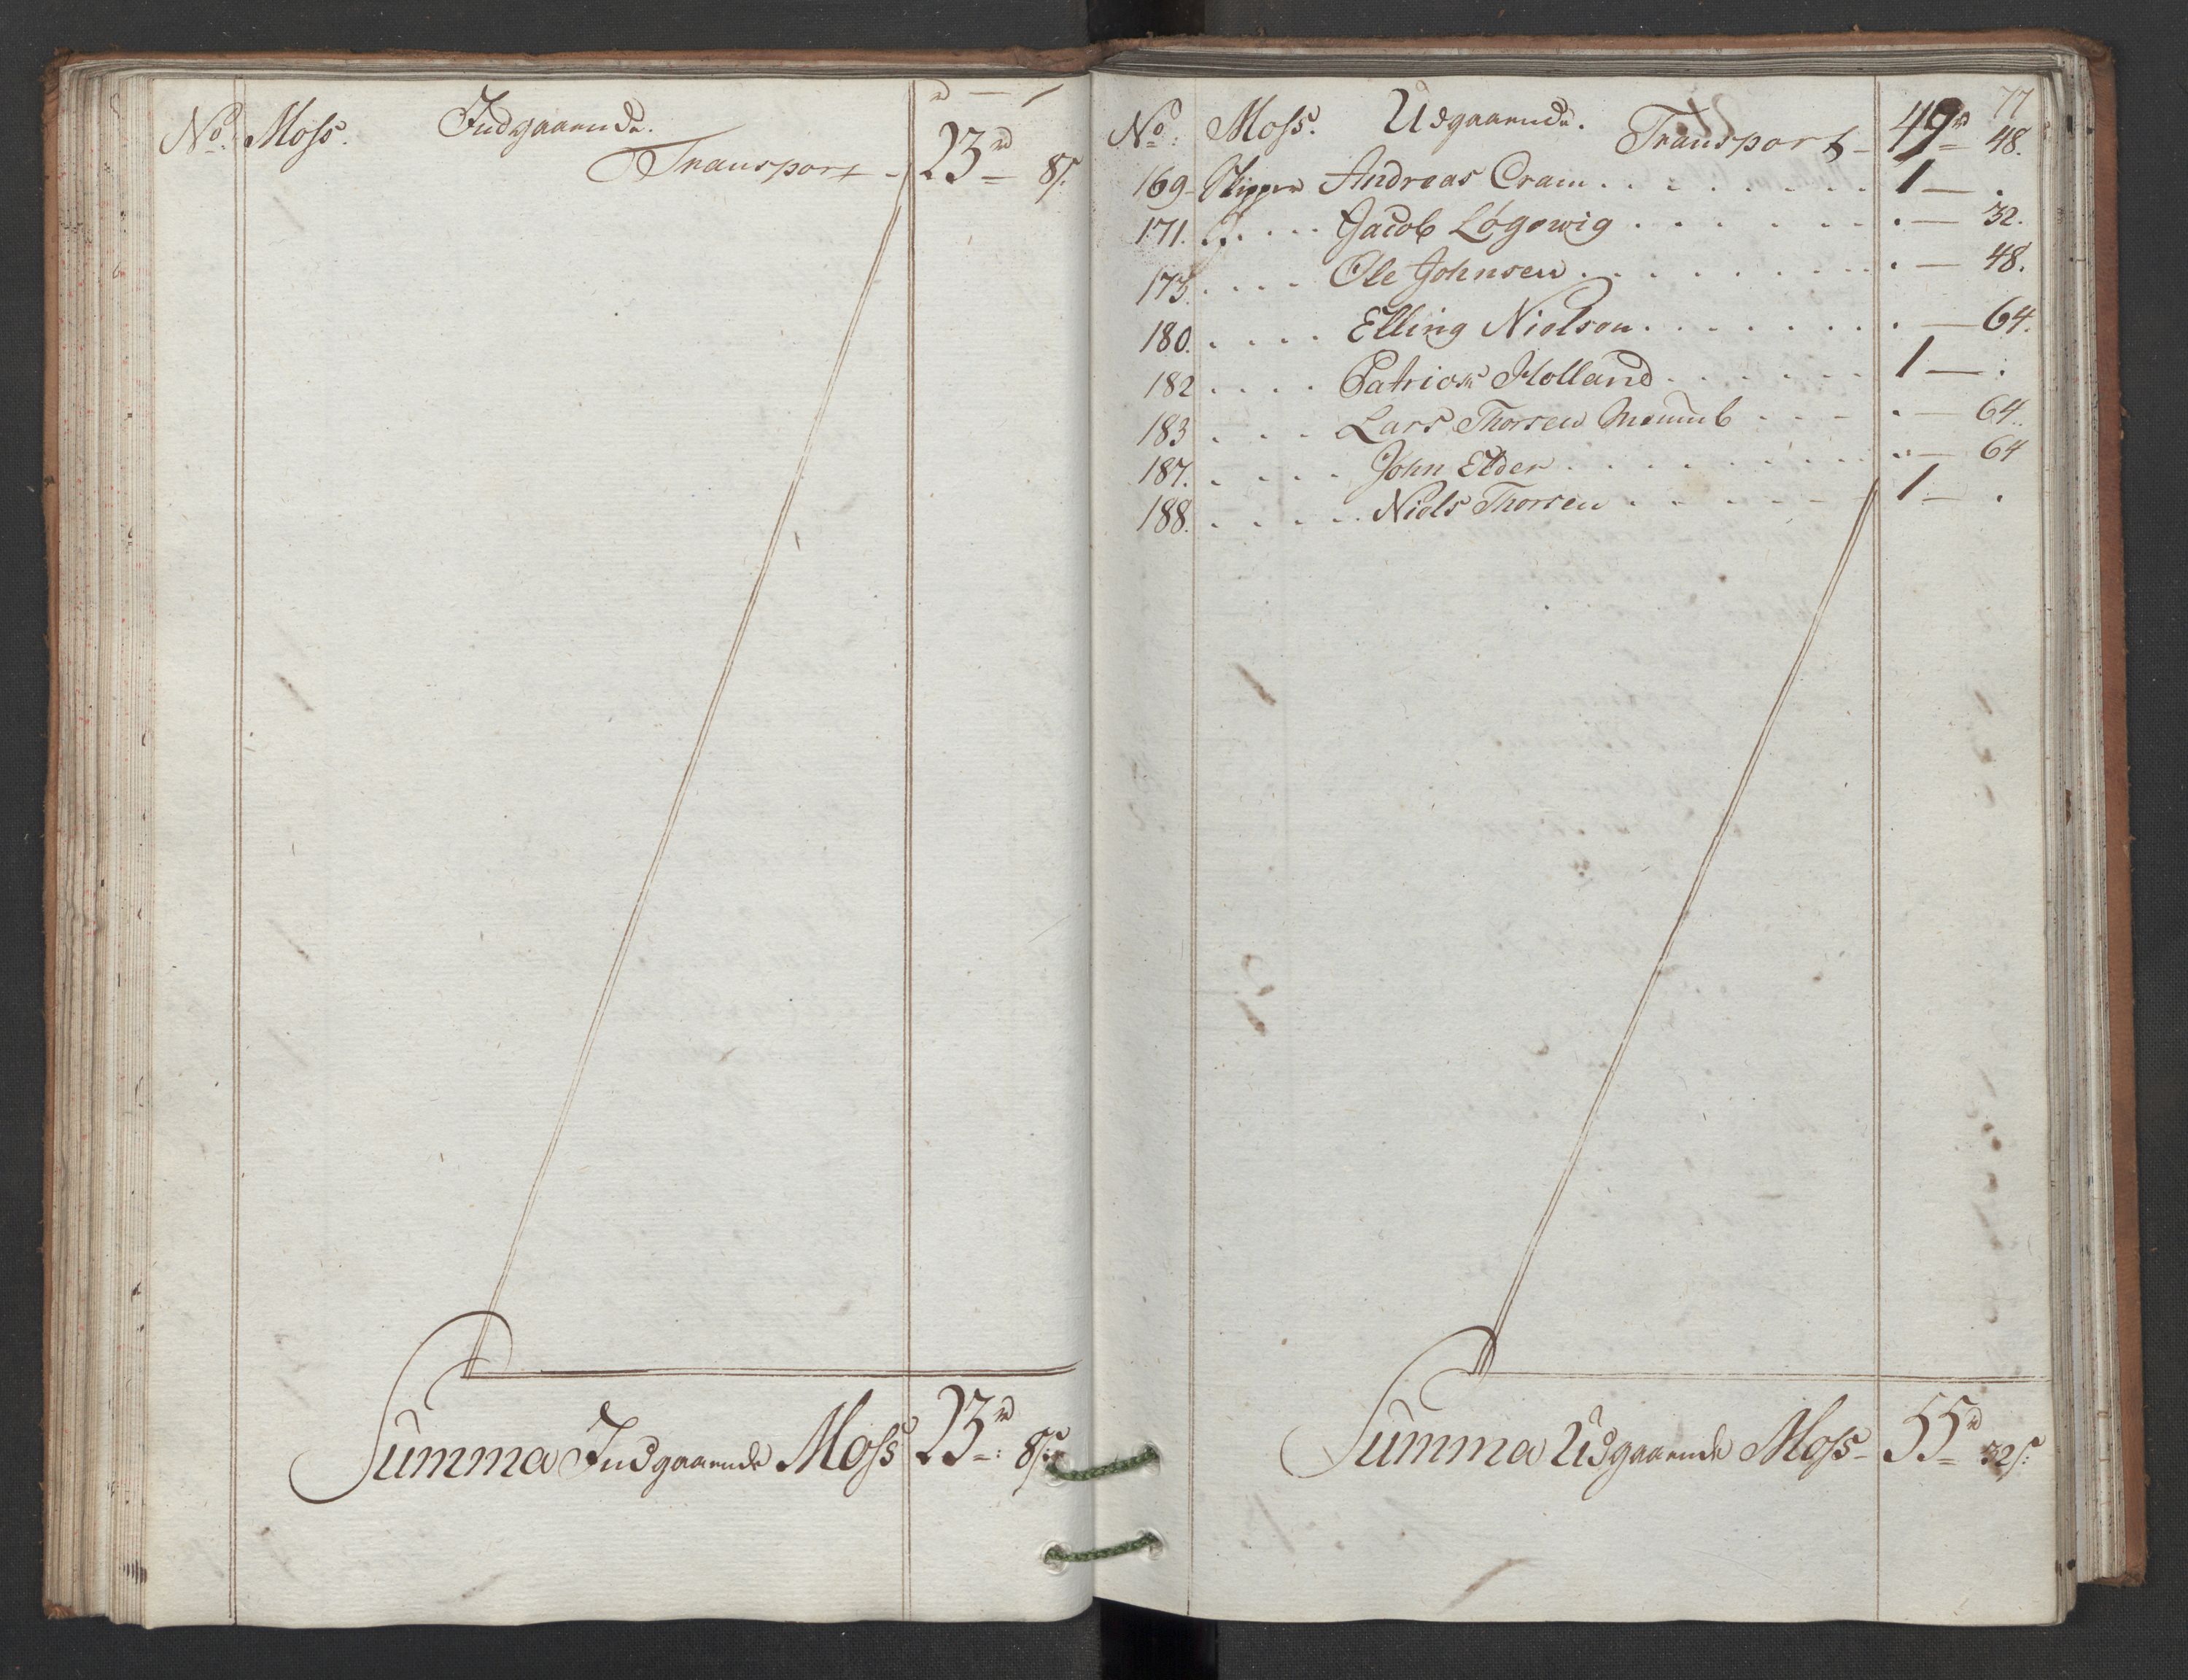 No. Moss. Indgaaende.
Transport - 23 rd 8 s:
Summa Indgaaende Moss 23 rd: 8 s:
77
No: Moss. Udgaaende. Transport - 49 rd 48.
169 - Skipper Andreas Cram . . . . . . . 1 — .
171. d. . . . Jacob Løgewig . . . . . . . — 32.
173. . . . . Ole Johnsen . . . . . . . . — 48.
180. . . . . Elling Nielsen . . . . . . . . — 64.
182 . . . . Patrick Holland . . . . . . 1 — .
183 . . . Lars Thorsen . . . . — 64.
187. . . . . John Elder . . . . . . . . — 64
188. . . . . Niels Thorsen . . . . . . 1 — .
Summa Udgaaende Moss - 55 rd 32 s: